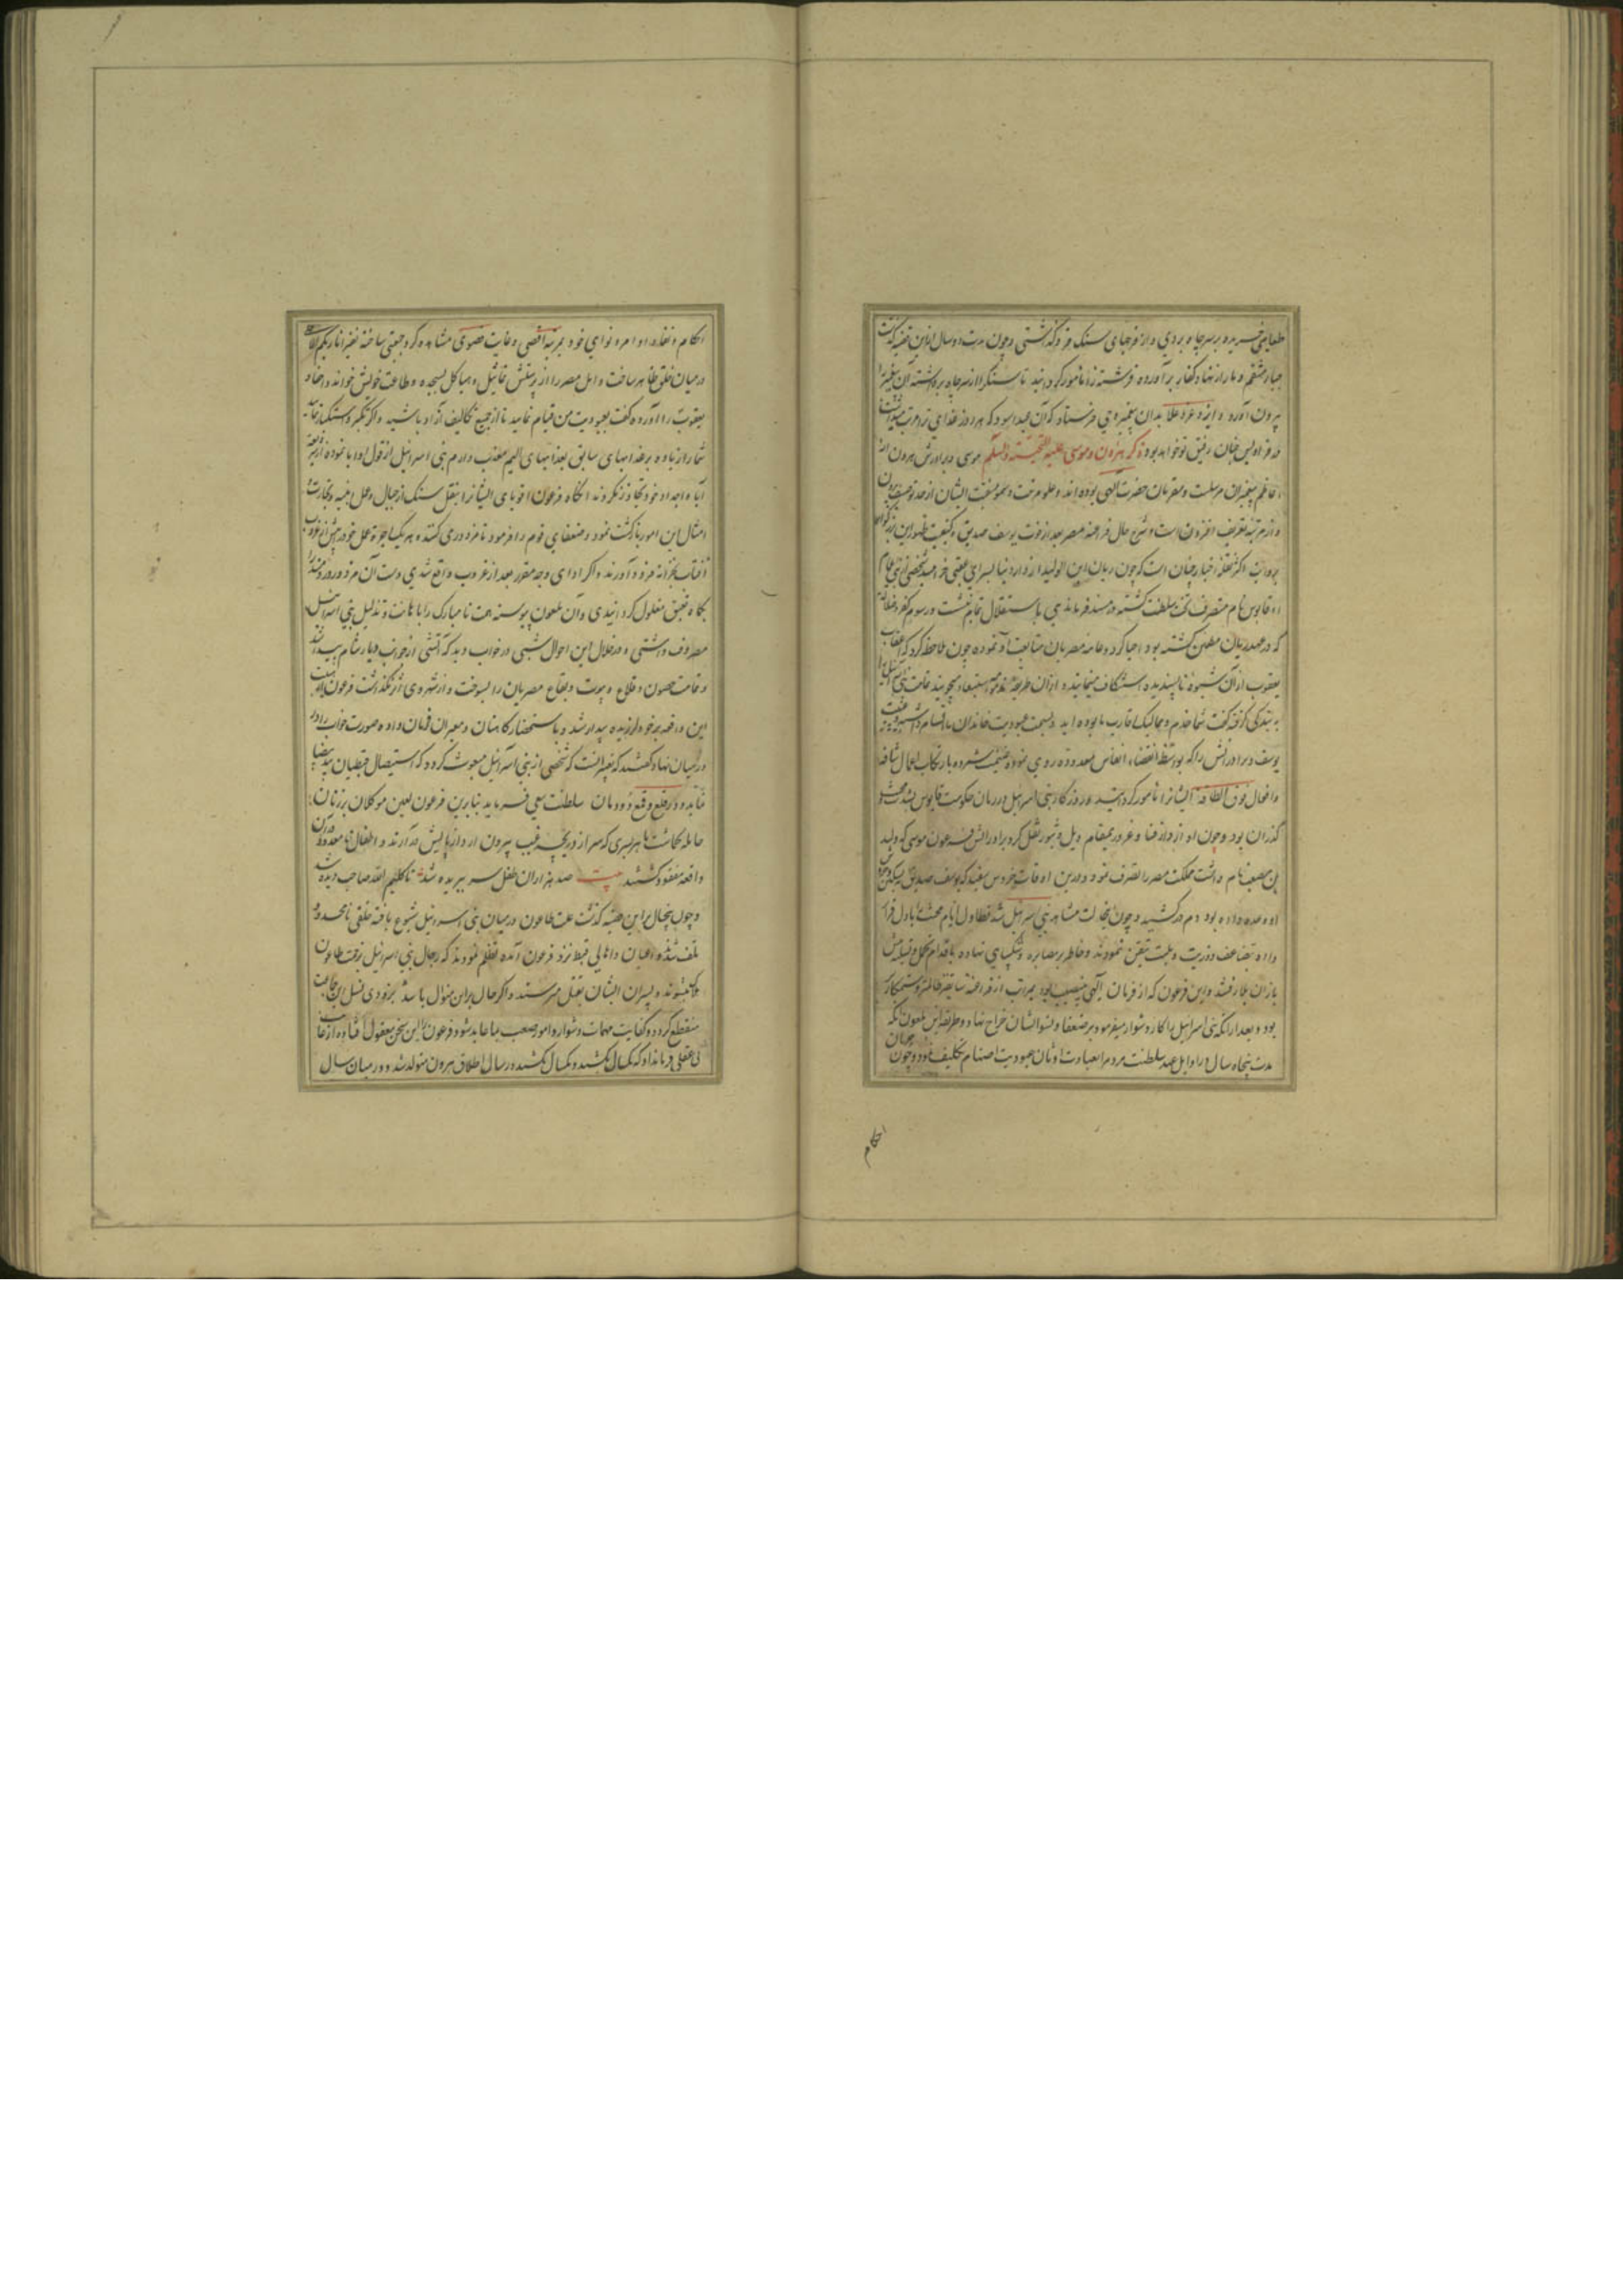 طعامی خریده بر سر چاه بردی و از فرجهای سنک فرو گذاشتی و چون مدت دو سال ازین قضیه گذشت
جبار منتقم دمار از نهاد کفار برآورده فرشته را مامور گردانید تا سنک را از سر چاه برداشته آن پیغمبر را
بیرون آورد و ایزد عز و علا بدان پیغمبر وحی فرستاد که آن عبد اسود که هر روز غذای تو مرتب
در فرادیس جنان رفیق تو خواهد بود ذکر هرون و موسی علیه التحیته والسلم موسی و برادرش هرون از
اعاظم پیغمبران مرسلست و مقربان حضرت الهی بوده اند و علو مرتبت و سمو منقبت ایشان از حد توصیف بیرون
و از مرتبه تعریف افزون است و شرح حال فراعنه مصر بعد از فوت یوسف صدیق و کیفیت ظهور این
بروایت اکثر نقله اخبار چنان است که چون ریان ابن الولید از دار دنیا بسرای عقبی خرامید شخصی از بنی اعمام
او قابوس نام متصرف تخت سلطنت گشته در مسند فرماندهی باستقلال تمام بنشست و رسوم کفر و ضلالت
که در عهد ریان مطموس گشته بود احیا کرد و عامه مصریان متابعت او نموده چون ملاحظه کرد که اعقاب
یعقوب از آن شیوه ناپسندیده استنکاف مینمایند و از آن طریقه مذمومه استبعاد میجویند تمامت بنی اسرائیل را
به بندگی گرفته گفت شما خدم و ممالیک اقارب ما بوده اید و بسمت عبودیت خاندان ما اتسام داشته
یوسف و برادرانش را که بواسطه انقضاء انفاس معدوده روی نموده غنیمت شمرده بارتکاب اعمال شاقه
و افعال فوق الطاقه ایشانرا مامور گردانید و روزگار بنی اسرائیل در زمان حکومت قابوس بشدت
گذران بود و چون او از دار فنا و غرور بمقام ویل و ثبور نقل کرد برادرش فرعون موسی که ولید
بن مصعب نام داشت مملکت مصر را تصرف نمود و درین اوقات خروس سفید که یوسف صدیق
وعده داده بود دم در کشید و چون این حالت مشاهد بنی اسرائیل شد تطاول ایام محنت را با دل قرار
داده تضاعف و زیت و بلیت تیقن نمودند و خاطر بر مصابره و شکیبای نهاده باقدام تحمل
باز آن بلا رفتند و این فرعون که از فرمان الهی بی نصیب بود بمراتب از فراعنه سابقه ظالمتر و ستمکارتر
بود و بعد از آنکه بنی اسرائیل را بکار دشوار میفرمود بر ضعفا و نسوان ایشان خراج نهاد و طریقه این ملعون آنکه
مدت پنجاه سال در اوایل عهد سلطنت مردم را بعبادت اوثان و عبودیت اصنام تکلیف نمود و چون جریان
احکام
احکام و نفاذ اوامر و نواهی خود بمرتبه اقصی و غایت قصوی مشاهده کرد جمعی ساخته نعره انا ربکم الاعلی
در میان خلق ظاهر ساخت و اهل مصر را از پرستش تماثیل و هیاکل بسجده و طاعت خویش خواند و احفاد
یعقوب را آورده گفت بعبودیت من قیام نمایید تا از جمیع تکالیف آزاد باشید و اگر تکبر و استکبار نمایید
شما را زیاده بر عذابهای سابق بعذابهای الیم معذب دارم بنی اسرائیل از قول او ابا نموده از ملت
آباء و اجداد خود تجاوز نکردند آنگاه فرعون اقویای ایشانرا بنقل سنک از جبال و عمل ابنیه و تجارت و
امثال این امور بازگشت نمود و ضعفای قوم را فرمود تا مزدوری کنند و هر یک اجره عمل خود پیش از غروب
آفتاب بخزانه فرود آورند و اگر ادای وجه مقرر بعد از غروب واقع شدی دست آن مزدور دردمند را
یکماه بعنق مغلول گردانیدی و آن ملعون پیوسته همت نامبارک را باهانت و تذلیل بنی اسرائیل
مصروف داشتی و در خلال این احوال شبی در خواب دید که آتشی از جوانب دیار شام پیدا شد
و تمامت حصون و قلاع و بیوت و بقاع مصریان را بسوخت و از شهر وی اثر نگذاشت فرعون از هیبت
این واقعه بر خود لرزیده بیدار شد و باستحضار کاهنان و معبران فرمان داده صورت خواب را در
در میان نهاد گفتند که تعبیر آنست که شخصی از بنی اسرائیل مبعوث گردد که استیصال قبطیان ید بیضا
نماید و در قلع و قمع دودمان سلطنت سعی فرماید بنابرین فرعون لعین موکلان بر زنان
حامله گماشت تا هر پسری که سر از دریچه غیب بیرون آرد از پایش درآرند و اطفال نامعدود در آن
واقعه مفقود گشتند بیت صد هزاران طفل سر ببریده شد تا کلیم الله صاحب دیده شد
و چون پنجسال برین قضیه گذشت علت طاعون در میان بنی اسرائیل شیوع یافته خلقی نامحدود
تلف شدند اعیان و اهالی قبط نزد فرعون آمده تظلم نمودند که رجال بنی اسرائیل بزحمت طاعون
هلاک میشوند و پسران ایشان بقتل میرسند و اگر حال بر این منوال باشد بزودی نسل این جماعت
منقطع گردد و کفایت مهمات دشوار و امور صعب بما عاید شود فرعون را این سخن معقول افتاده از غایت
بی عقلی فرمان داد که یکسال بکشند و یکسال نکشند در سال اطلاق هرون متولد شد و در میان سال